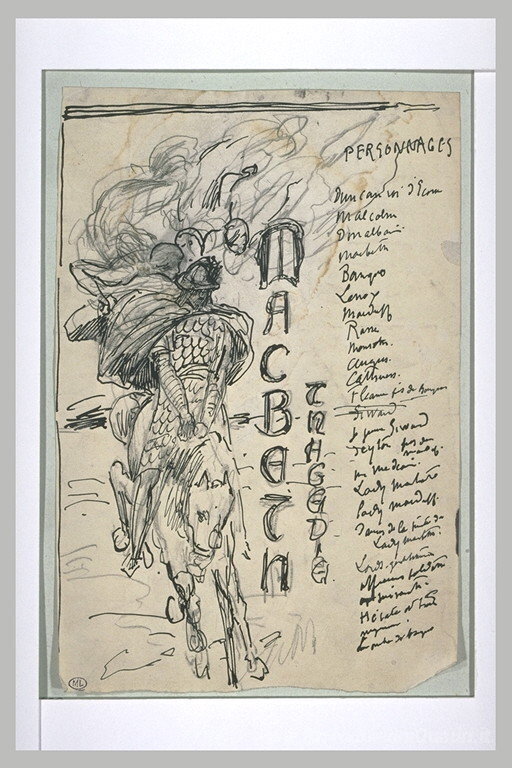 MACBETH
TRAGEDIE
PERSONNAGES
Duncan roi d'Ecosse
Malcolm
Donalbain.
Macbeth
Banquo
Lenox
Macduff
Rosse
Menteth.
Angus.
Cathness.
Fleance fils de Banquo
Siward
le jeune Siward
Seyton
un medecin.
Lady Macbeth
Lady Macduff.
Lady Macbeth.
Lords
officiers soldats
Hécate et trois
ML